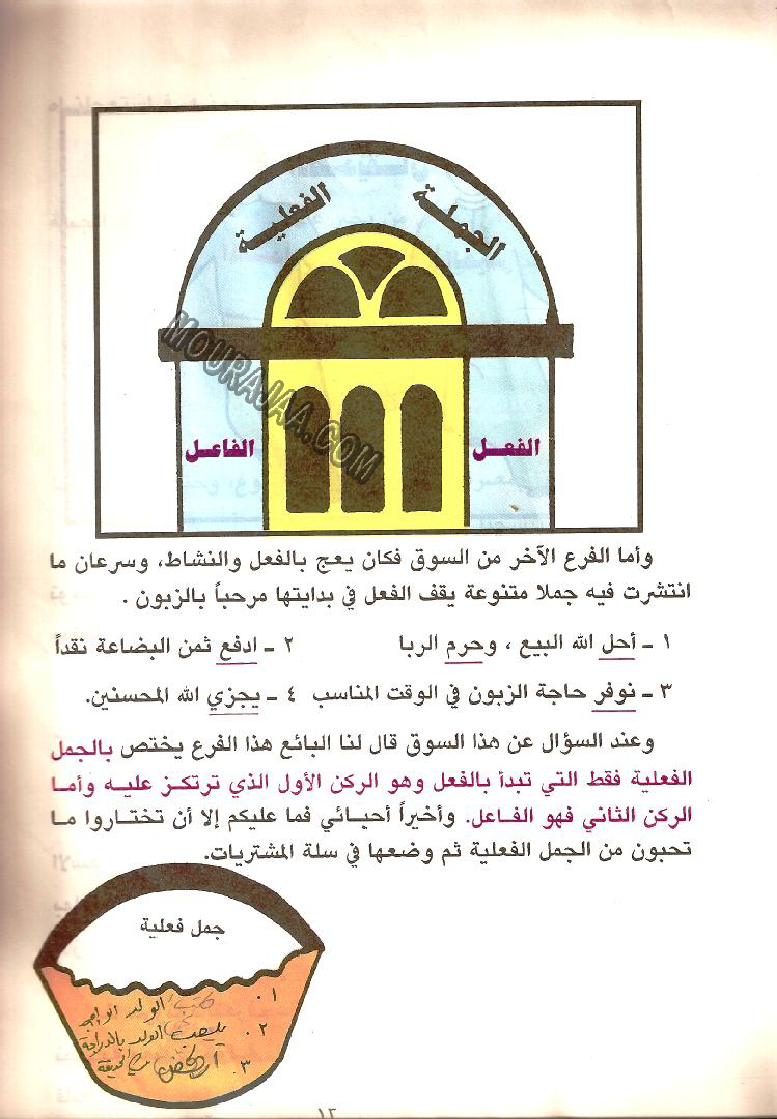 الجملة الفعلية
الفعل
الفاعل
MOURAJAA.COM
وأما الفرع الآخر من السوق فكان يعج بالفعل والنشاط، وسرعان ما
انتشرت فيه جملا متنوعة يقف الفعل في بدايتها مرحباً بالزبون .
١ - أحل الله البيع ، وحرم الربا ٢ - ادفع ثمن البضاعة نقداً
٣ - نوفر حاجة الزبون في الوقت المناسب ٤ - يجزي الله المحسنين.
وعند السؤال عن هذا السوق قال لنا البائع هذا الفرع يختص بالجمل
الفعلية فقط التي تبدأ بالفعل وهو الركن الأول الذي ترتكز عليه وأما
الركن الثاني فهو الفاعل. وأخيراً أحبائي فما عليكم إلا أن تختاروا ما
تحبون من الجمل الفعلية ثم وضعها في سلة المشتريات.
جمل فعلية
١. كتب الولد الواجب
٢. يلعب الولد بالدراجة
٣. الحديقة
١٣